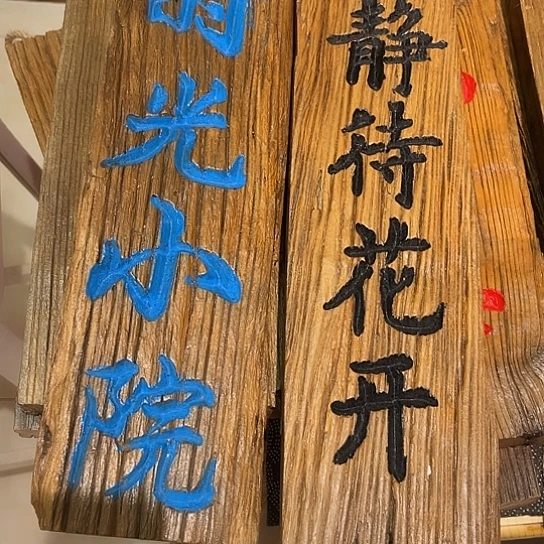 光小院
静待花开